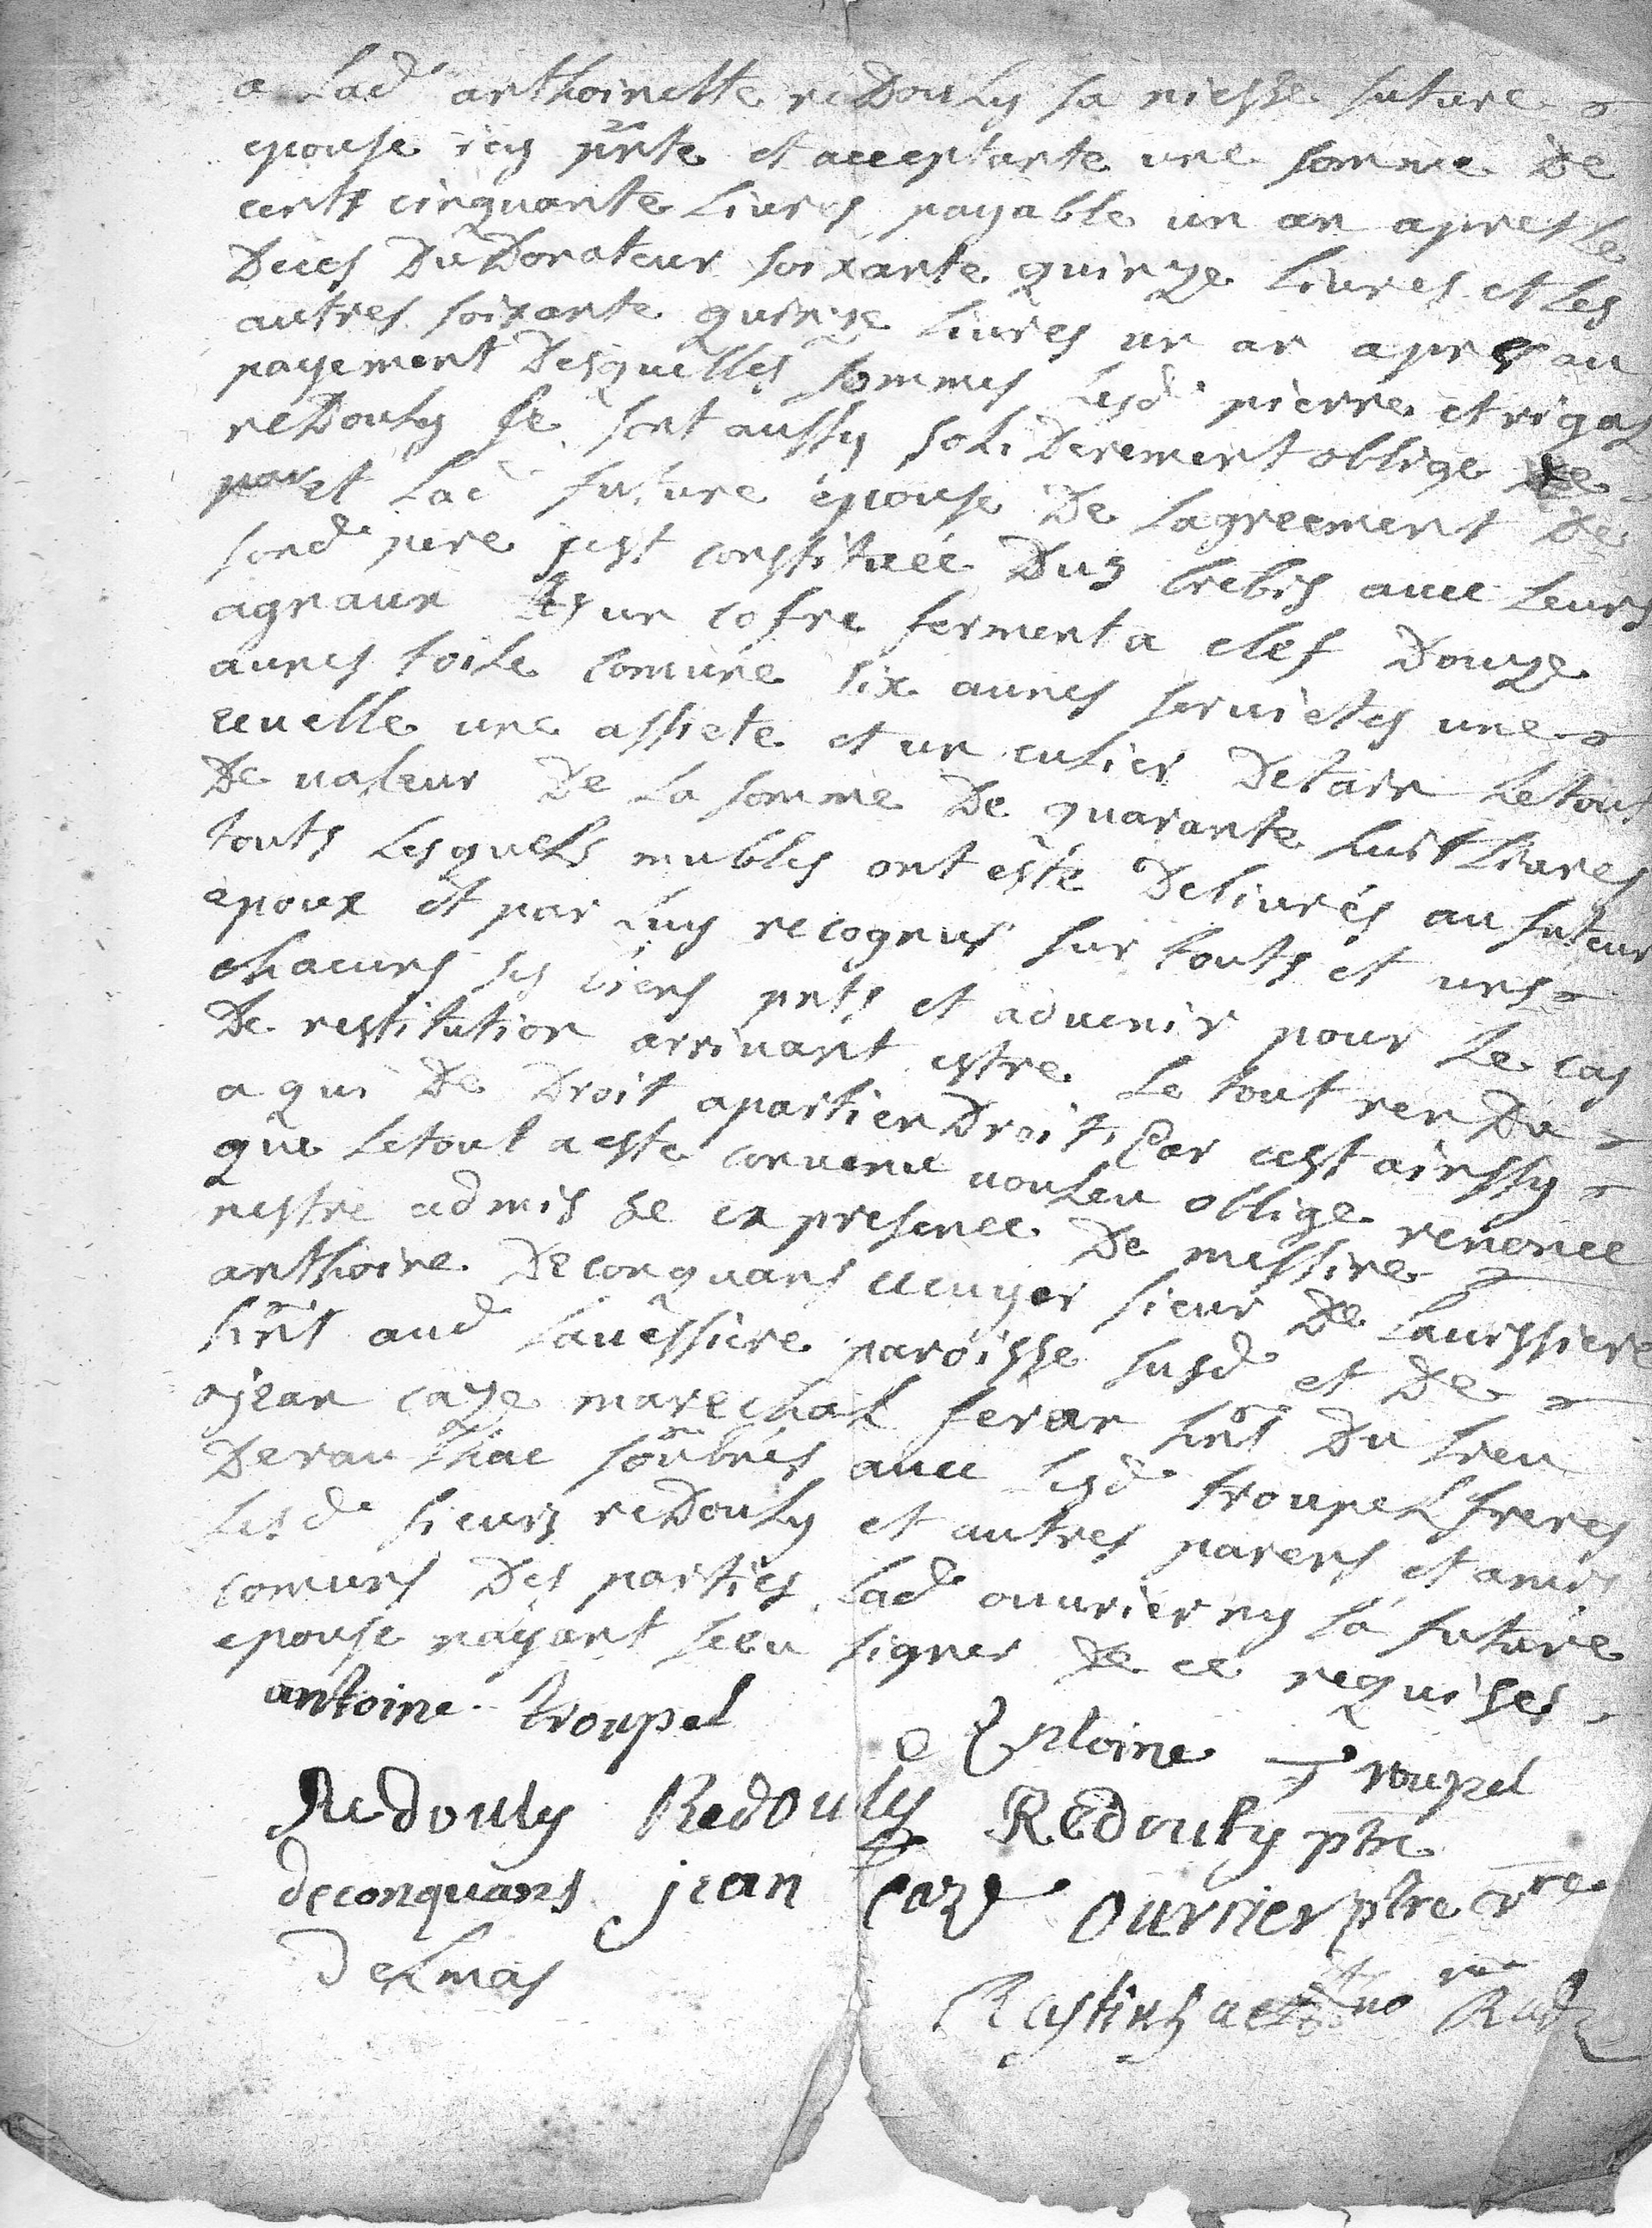 a lad anthoinette redouly sa niesse future
epouse icy pnte et acceptante une somme de
cents cinquante livres payable un an apres le
deces du donateur soixante quinze livres et les
autres soixante quinze livres un an apres au
payement desquelles sommes lesd pierre et rigal
redouly se sont aussy soliderement oblige
et lad future epouse de lagreement de
sond pere sest constituée brebis avec leurs
agnaux un cofre ferment a clef douze
aunes toile comune six aunes servietes une
ecuelle une assiete et un culier detain le tout
de valeur de la somme de quarante huit livres
touts lesquels mubles ont esté delivrés au futeur
epoux et par luy recognus sur touts et uns
chacuns ses biens pnts et advenir pour le cas
de restitution arrivant estre le tout rendu
a qui de droit apartiendroit, Car cest ainssy
que le tout a esté convenu vouleu oblige renonce
nestre admis &e en presence de messire
anthoine deconquans ecuyer sieur de laveissiere
hint aud laveissiere paroisse susd et de
jean caze marechal feran hint du lieu
de soubnés avec lesd troupel freres
lesd sieurs redouly et autres parens et amis
comuns des parties lad ouvrier ny la future
epouse nayant sceu signer de ce requises
antoine troupel
Entoine Troupel
Redouly Redouly Redouly ptre
deconquans jean Caze ourrier ptre
delmas